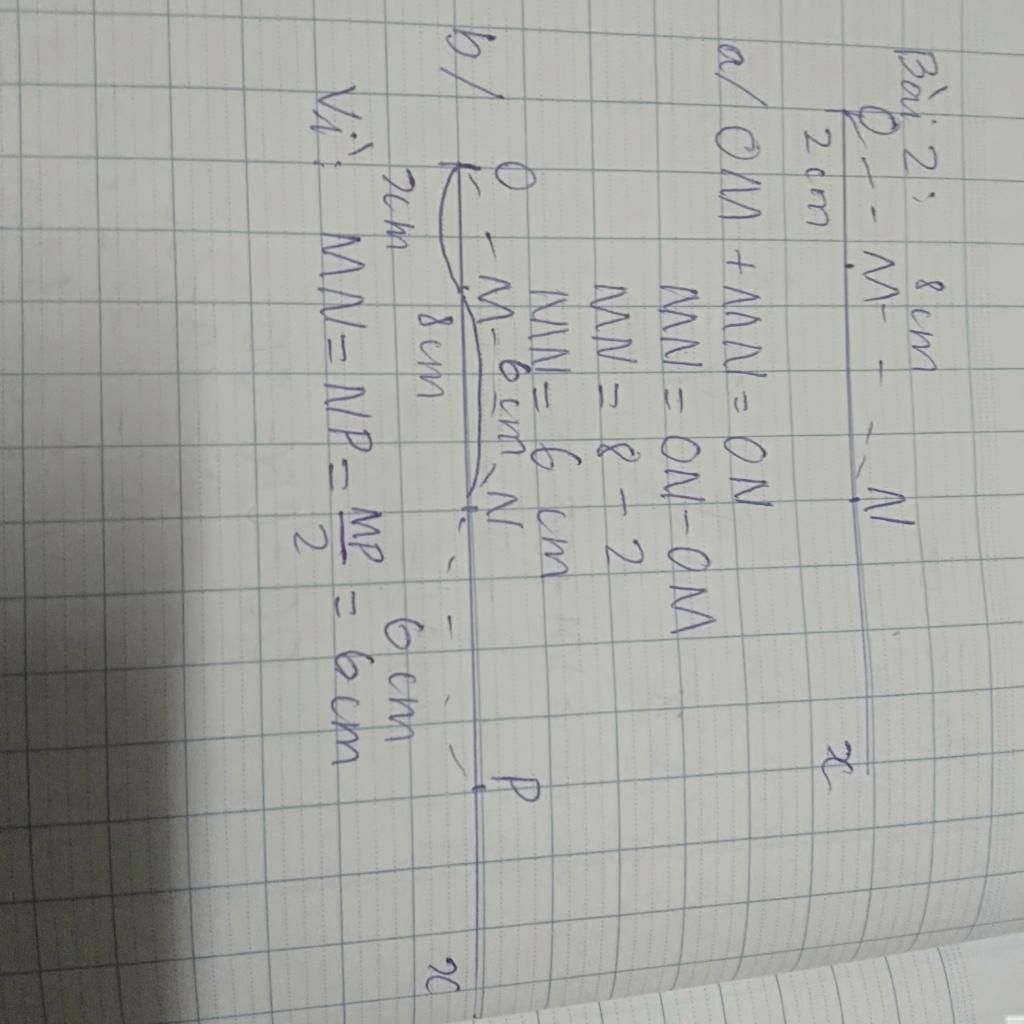 Bài 2: 8cm
O M N
2cm x
a/ OM + MN = ON
MN = ON - OM
MN = 8 - 2
MN = 6 cm
b/ O M 6cm N P
2cm 8cm 6cm x
Vì: MN = NP = MP/2 = 6cm